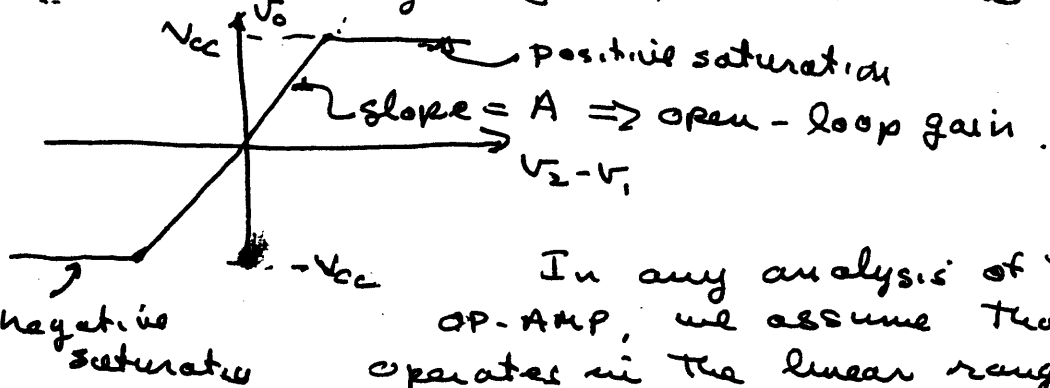 V₀
Vcc
positive saturation
slope = A ⇒ open-loop gain.
V₂-V₁
-Vcc
negative
In any analysis of
OP-AMP, we assume
operates in the linear